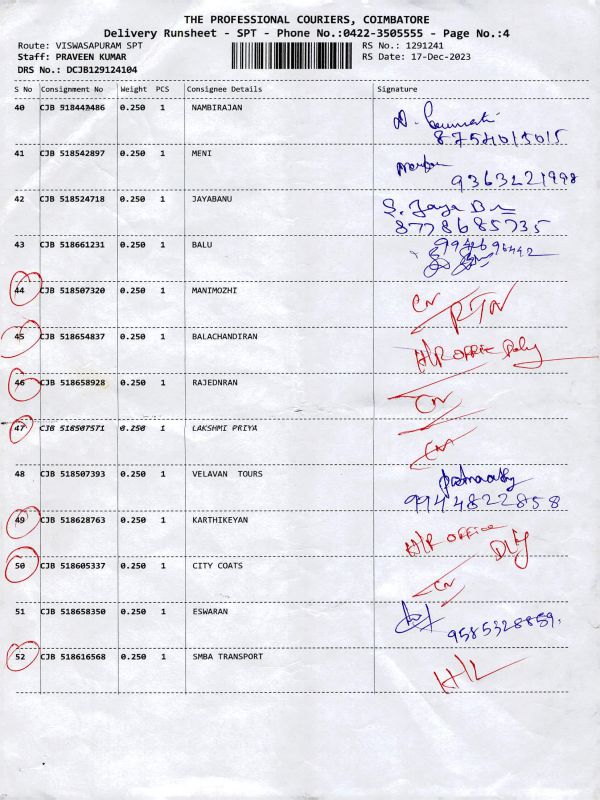 THE PROFESSIONAL COURIERS, COIMBATORE
Delivery Runsheet - SPT - Phone No.:0422-3505555 - Page No.:4
Route: VISWASAPURAM SPT RS No.: 1291241
Staff: PRAVEEN KUMAR RS Date: 17-Dec-2023
DRS No.: DCJB129124104
S No Consignment No Weight PCS Consignee Details Signature
40 CJB 518442486 0.250 1 NAMBIRAJAN
8754015015
41 CJB 518542897 0.250 1 MENI
9363221998
42 CJB 518524718 0.250 1 JAYABANU S. Jaya Banu
8778685735
43 CJB 518661231 0.250 1 BALU 9942696442
44 CJB 518507320 0.250 1 MANIMOZHI CN RTN
45 CJB 518654837 0.250 1 BALACHANDIRAN H/R OFFICE Dely
46 CJB 518658928 0.250 1 RAJEDNRAN CN
47 CJB 518507571 0.250 1 LAKSHMI PRIYA CN
48 CJB 518507393 0.250 1 VELAVAN TOURS
9944822858
49 CJB 518628763 0.250 1 KARTHIKEYAN H/R OFFICE
Dly
50 CJB 518605337 0.250 1 CITY COATS CN
51 CJB 518658350 0.250 1 ESWARAN
9585328859.
52 CJB 518616568 0.250 1 SMBA TRANSPORT H/L